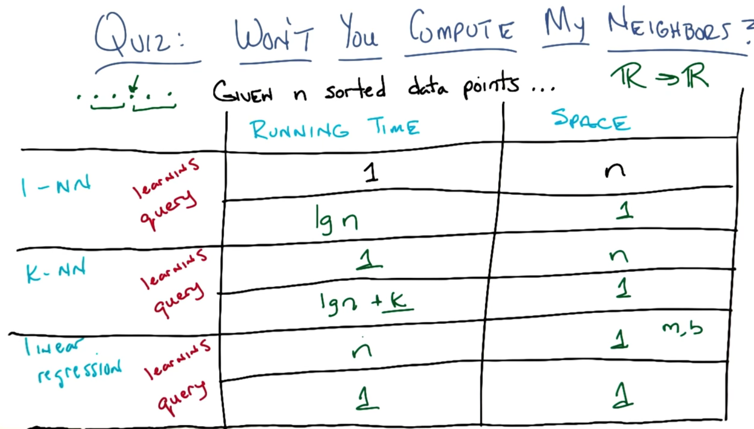 QUIZ: WON'T YOU COMPUTE MY NEIGHBORS?
GIVEN n sorted data points... ℝ → ℝ
RUNNING TIME SPACE
1-NN learning 1 n
query lg n 1
K-NN learning 1 n
query lg n + k 1
linear regression learning n 1 m,b
query 1 1